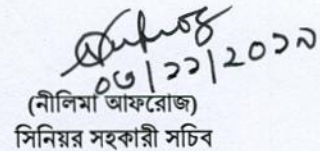 ০৬/১১/২০১৯
(নীলিমা আফরোজ)
সিনিয়র সহকারী সচিব